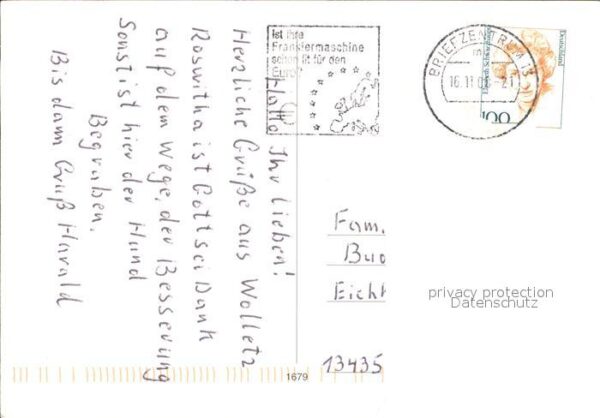 Hallo Ihr Lieben!
Herzliche Grüße aus Wolletz
Roswitha ist Gott sei Dank
auf dem Wege, der Besserung
Sonst ist hier der Hund
Begraben.
Bis dann Gruß Harald
Ist Ihre
Frankiermaschine
schon fit für den
Euro?
BRIEFZENTRUM 13
16.11.00-21
Deutschland
Elisabeth Schwarzhaupt
100
Fam.
Bu
Eich
13435
1679
privacy protection
Datenschutz